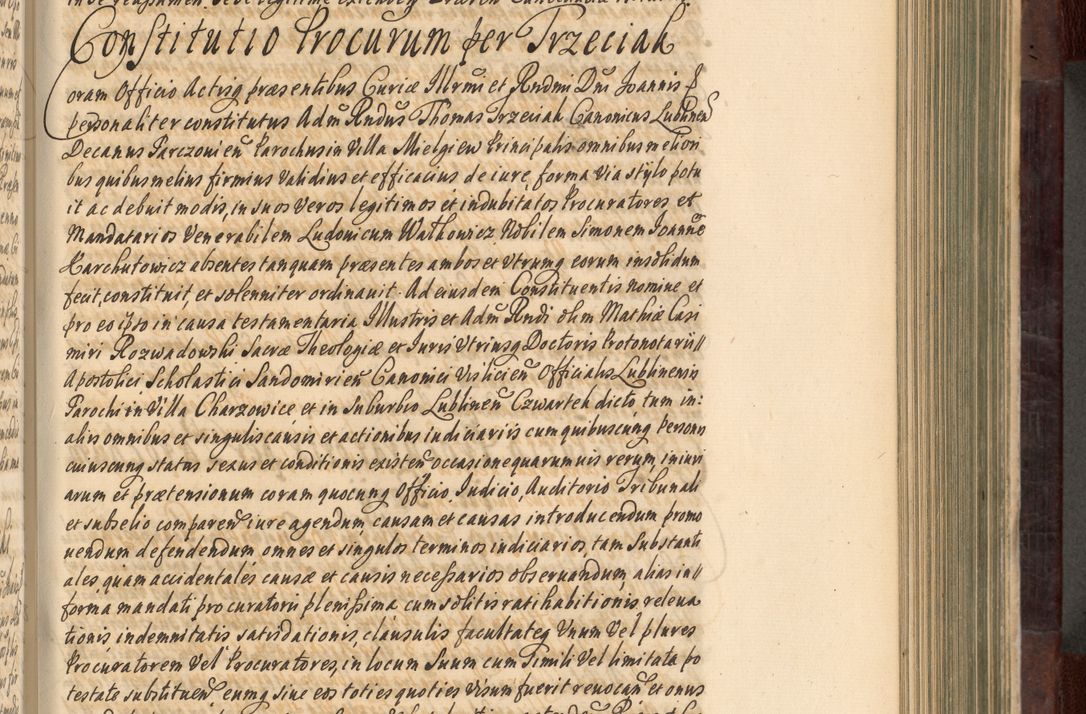 Constitutio Procurum per Trzeciak
Coram Officio Actisq præsentibus Curiæ Illrmi et Rndmi Dni Joannis P
personaliter constitutus Adm Rndus Thomas Trzeciak Canonicus Lublinen
Decanus Parczouien Parochus in Villa Mielgiew Principalis omnibus melion
bus quibus melius firmius validius et efficacius de iure, forma via stylo potu
it ac debuit modis, in suos veros legitimos et indubitatos Procuratores et
Mandatarios Venerabilem Ludouicum Walkowicz Nobilem Simonem Joanne
Harchutowicz absentes tanquam præsentes ambos et vtrumq eorum insolidum
fecit, constituit, et solenniter ordinauit. Ad eiusdem Constituentis nomine et
pro eo ipso in causa testamentaria Illustris et Adm Rndi olim Mathiæ Casi
miri Rozwadowski Sacræ Theologiæ et Iuris Vtriusq Doctoris Protonotarii//
Apostolici Scholastici Sandomirien Canonici Vislicien Officialis Lublinensis
Parochi in Villa Charzowice et in Suburbio Lublinen Czwartek dicto, tum in:
aliis omnibus et singulis causis et actionibus iudiciariis cum quibuscunq Personis
cuiuscunq status sexus et conditionis existen occasione quarumuis rerum, iniuri
arum et prætensionum coram quocunq Officio, Iudicio, Auditorio Tribunali
et subselio comparen iure agendum causam et causas introducendum promo
uendum defendendum omnes et singulos terminos iudiciarios, tam substanti
ales, quam accidentales causæ et causis necessarios obseruandum, alias in//
forma mandati procuratorii plenissima cum solitis ratihabitionis, releua
tionis indemnitatis satisdationis, clausulis facultateq Vnum Vel plures
Procuratorem Vel Procuratores, in locum Suum cum Simili Vel limitata po
testate substituen, eumq siue eos toties quoties visum fuerit reuocan, et onus